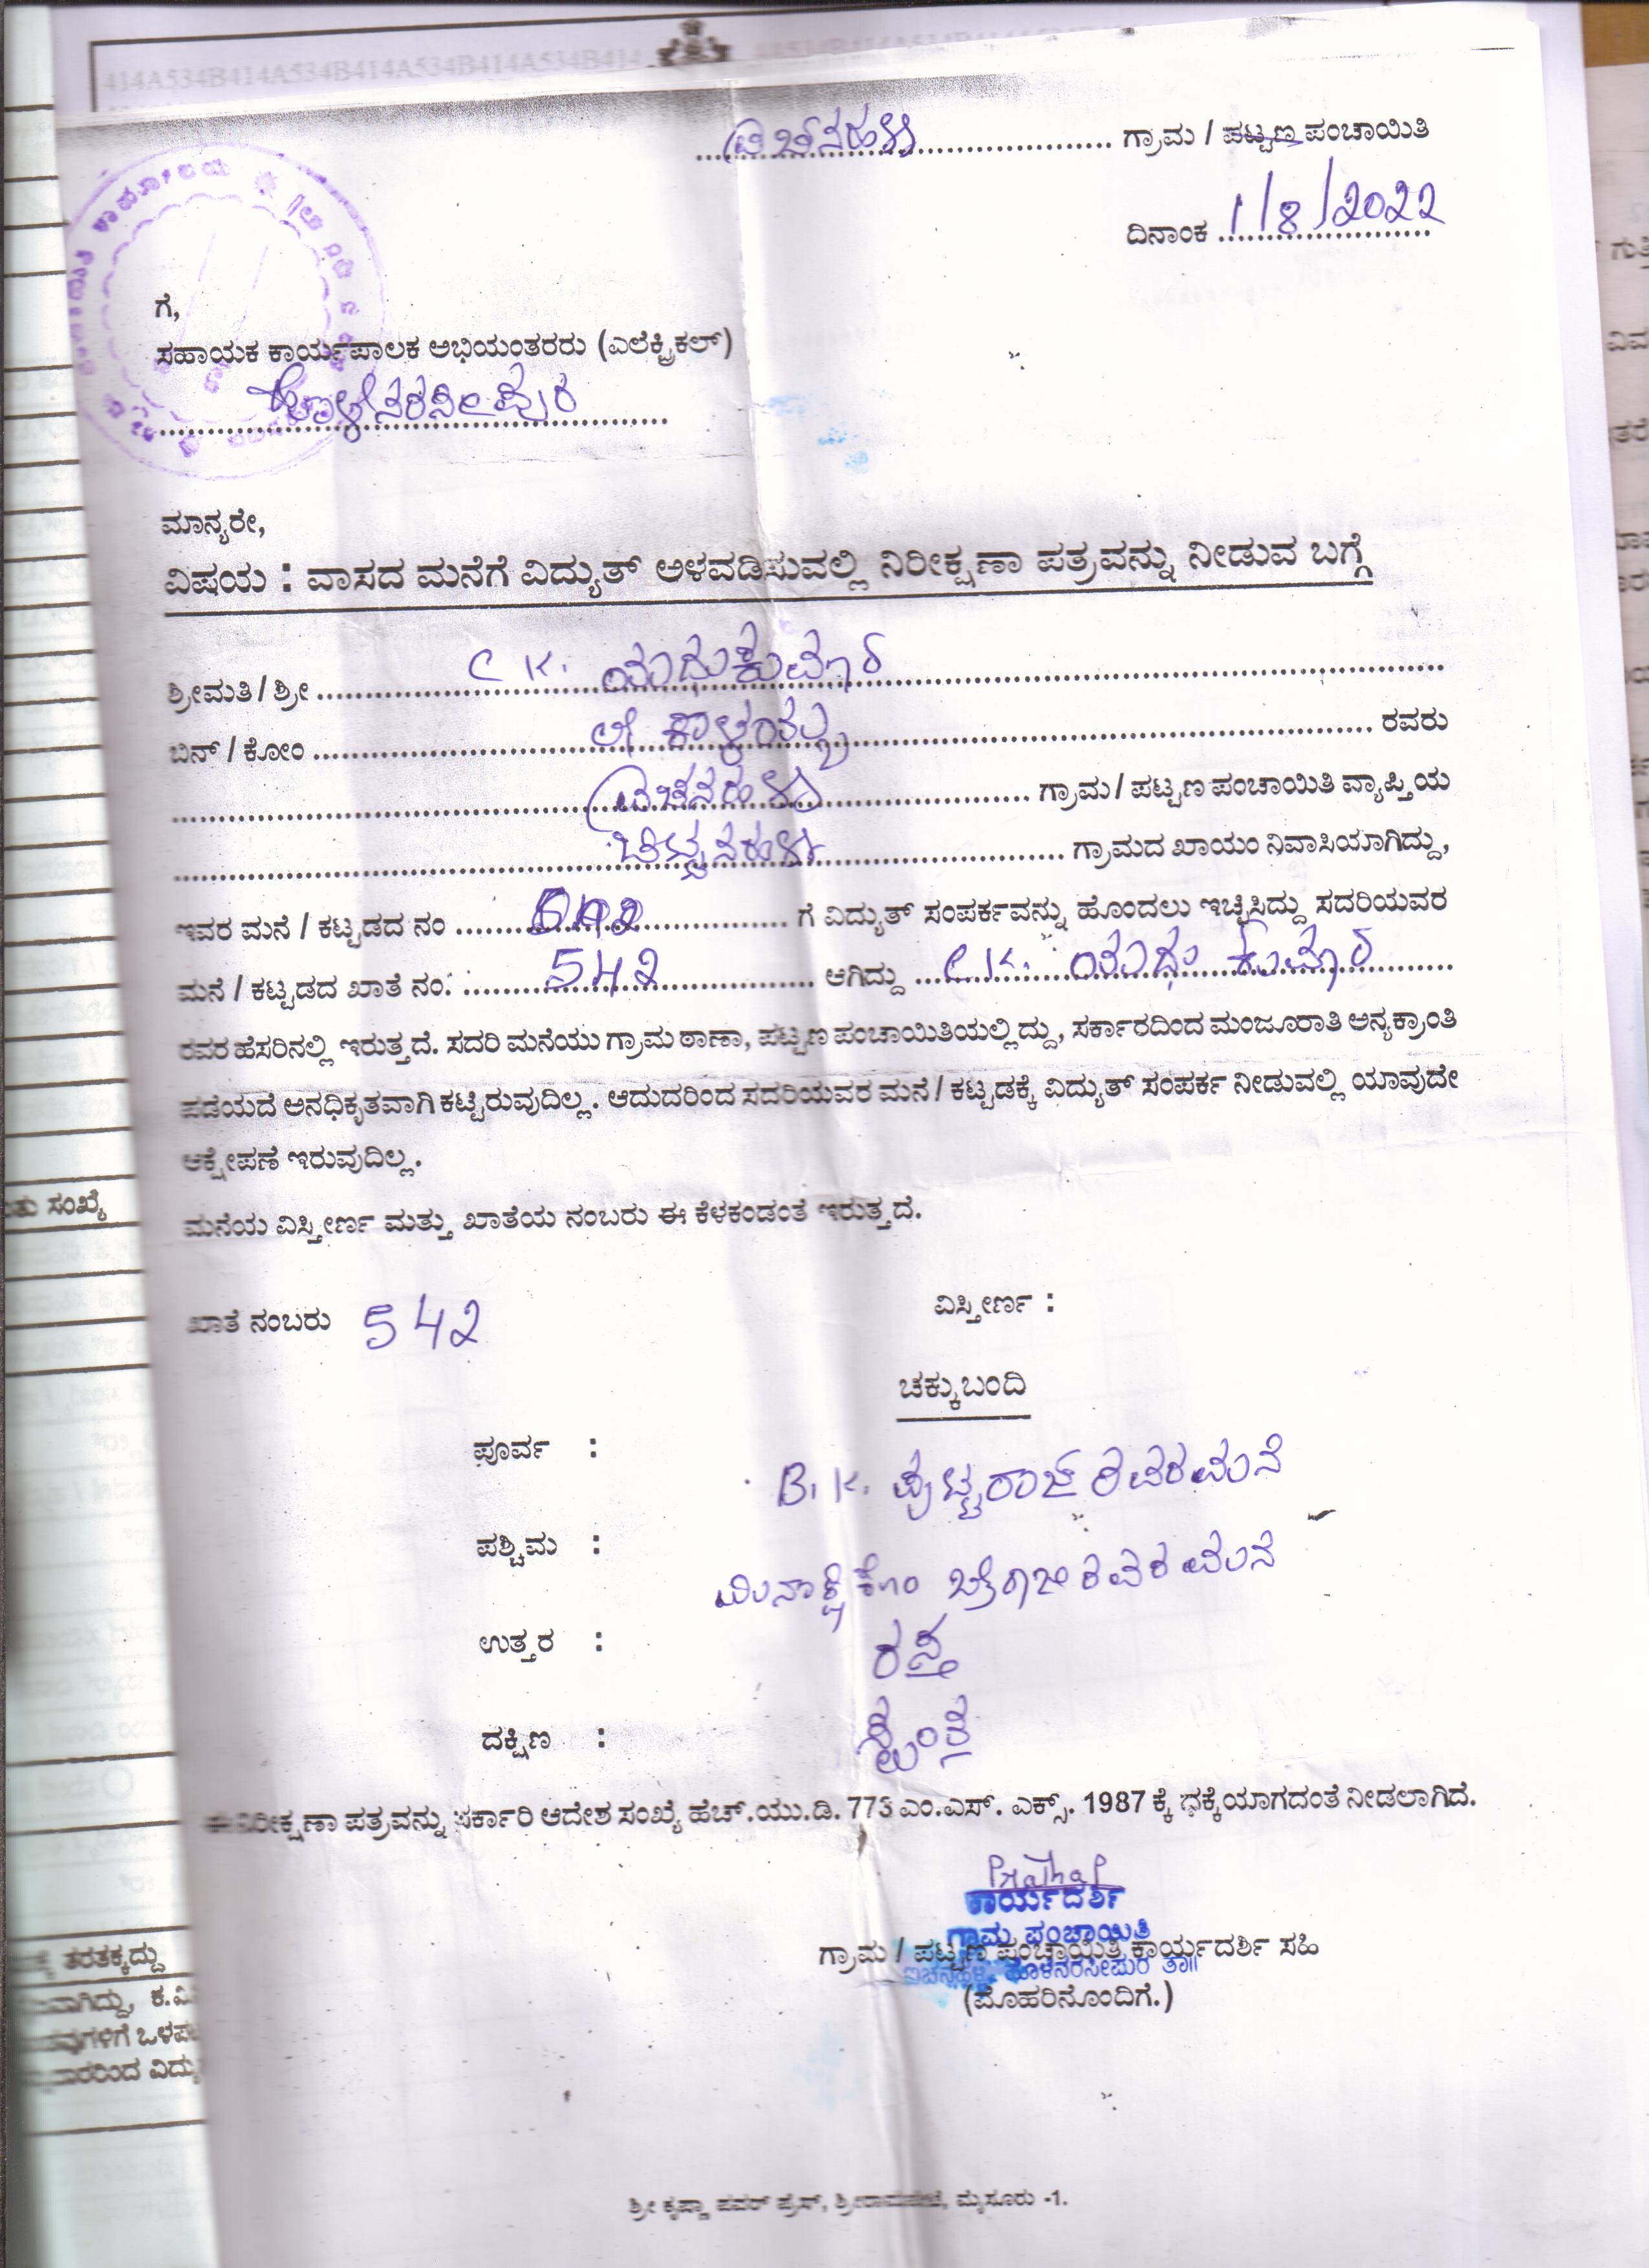 414A534B414A534B414A534B414A534B414
ಗ್ರಾಮ / ಪಟ್ಟಣ ಪಂಚಾಯಿತಿ
ದಿನಾಂಕ 1/8/2022
ಗೆ,
ಸಹಾಯಕ ಕಾರ್ಯಪಾಲಕ ಅಭಿಯಂತರರು (ಎಲೆಕ್ಟ್ರಿಕಲ್)
ಹೊಳೆನರಸೀಪುರ
ಮಾನ್ಯರೇ,
ವಿಷಯ : ವಾಸದ ಮನೆಗೆ ವಿದ್ಯುತ್ ಅಳವಡಿಸುವಲ್ಲಿ ನಿರೀಕ್ಷಣಾ ಪತ್ರವನ್ನು ನೀಡುವ ಬಗ್ಗೆ
ಶ್ರೀಮತಿ / ಶ್ರೀ C K. ಮಧುಕುಮಾರ
ಬಿನ್ / ಕೋಂ ರವರು
ಗ್ರಾಮ / ಪಟ್ಟಣ ಪಂಚಾಯಿತಿ ವ್ಯಾಪ್ತಿಯ
ಗ್ರಾಮದ ಖಾಯಂ ನಿವಾಸಿಯಾಗಿದ್ದು,
ಇವರ ಮನೆ / ಕಟ್ಟಡದ ನಂ 542 ಗೆ ವಿದ್ಯುತ್ ಸಂಪರ್ಕವನ್ನು ಹೊಂದಲು ಇಚ್ಛಿಸಿದ್ದು ಸದರಿಯವರ
ಮನೆ / ಕಟ್ಟಡದ ಖಾತೆ ನಂ. 542 ಆಗಿದ್ದು C.K. ಮಧು ಕುಮಾರ
ರವರ ಹೆಸರಿನಲ್ಲಿ ಇರುತ್ತದೆ. ಸದರಿ ಮನೆಯು ಗ್ರಾಮ ಠಾಣಾ, ಪಟ್ಟಣ ಪಂಚಾಯಿತಿಯಲ್ಲಿದ್ದು, ಸರ್ಕಾರದಿಂದ ಮಂಜೂರಾತಿ ಅನ್ಯಕ್ರಾಂತಿ
ಪಡೆಯದೆ ಅನಧಿಕೃತವಾಗಿ ಕಟ್ಟಿರುವುದಿಲ್ಲ. ಆದುದರಿಂದ ಸದರಿಯವರ ಮನೆ / ಕಟ್ಟಡಕ್ಕೆ ವಿದ್ಯುತ್ ಸಂಪರ್ಕ ನೀಡುವಲ್ಲಿ ಯಾವುದೇ
ಆಕ್ಷೇಪಣೆ ಇರುವುದಿಲ್ಲ.
ಮನೆಯ ವಿಸ್ತೀರ್ಣ ಮತ್ತು ಖಾತೆಯ ನಂಬರು ಈ ಕೆಳಕಂಡಂತೆ ಇರುತ್ತದೆ.
ಖಾತೆ ನಂಬರು 542 ವಿಸ್ತೀರ್ಣ :
ಚಕ್ಕುಬಂದಿ
ಪೂರ್ವ : B.K. ಪುಟ್ಟರಾಜ್ ರವರ ಮನೆ
ಪಶ್ಚಿಮ : ಮಿನಾಕ್ಷಿ ಕೋಂ ರವರ ಮನೆ
ಉತ್ತರ : ರಸ್ತೆ
ದಕ್ಷಿಣ :
ಈ ನಿರೀಕ್ಷಣಾ ಪತ್ರವನ್ನು ಸರ್ಕಾರಿ ಆದೇಶ ಸಂಖ್ಯೆ ಹೆಚ್.ಯು.ಡಿ. 773 ಎಂ.ಎಸ್. ಎಕ್ಸ್. 1987 ಕ್ಕೆ ಧಕ್ಕೆಯಾಗದಂತೆ ನೀಡಲಾಗಿದೆ.
Prathap
ಕಾರ್ಯದರ್ಶಿ
ಗ್ರಾಮ ಪಂಚಾಯಿತಿ
ಗ್ರಾಮ / ಪಟ್ಟಣ ಪಂಚಾಯಿತಿ ಕಾರ್ಯದರ್ಶಿ ಸಹಿ
ಹೊಳೆನರಸೀಪುರ ತಾ||
(ಮೊಹರಿನೊಂದಿಗೆ.)
ಶ್ರೀ ಕೃಷ್ಣಾ ಪವರ್ ಪ್ರೆಸ್, ಶ್ರೀರಾಮಪೇಟೆ, ಮೈಸೂರು -1.